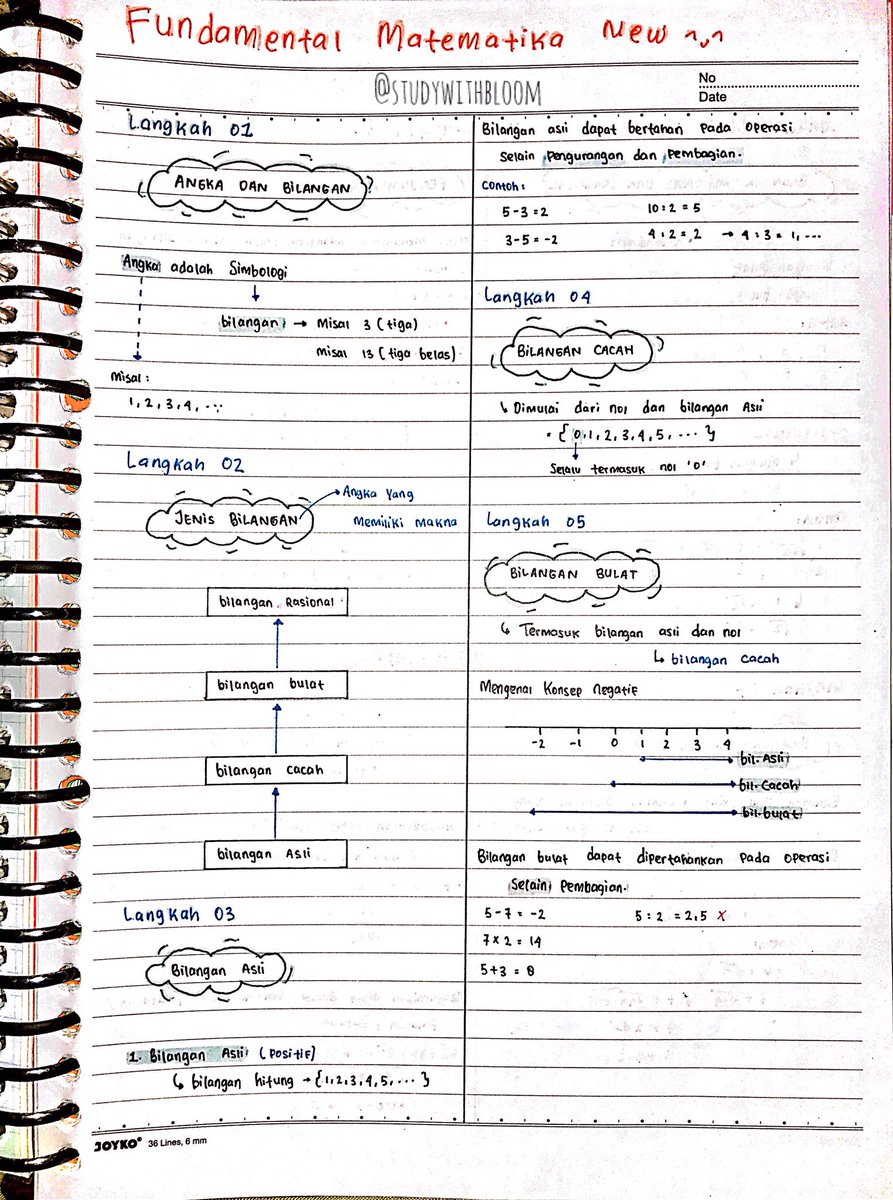 Fundamental Matematika New ~.~
@STUDYWITHBLOOM
No
Date
Langkah 01
ANGKA DAN BILANGAN
Angka adalah Simbologi
bilangan → Misal 3 (tiga)
misal 13 (tiga belas)
misal :
1, 2, 3, 4, ...
Langkah 02
JENIS BILANGAN
Angka Yang
Memiliki Makna
bilangan Rasional
bilangan bulat
bilangan cacah
bilangan Asli
Langkah 03
Bilangan Asli
1. Bilangan Asli (Positif)
↳ bilangan hitung → {1, 2, 3, 4, 5, ... }
Bilangan asli dapat bertahan pada operasi
Selain pengurangan dan pembagian.
Contoh :
5 - 3 = 2 10 : 2 = 5
3 - 5 = -2 4 : 2 = 2 → 4 : 3 = 1, ...
Langkah 04
BILANGAN CACAH
↳ Dimulai dari nol dan bilangan Asli
• { 0, 1, 2, 3, 4, 5, ... }
Selalu termasuk nol '0'
Langkah 05
BILANGAN BULAT
↳ Termasuk bilangan asli dan nol
↳ bilangan cacah
Mengenal Konsep negatif
-2 -1 0 1 2 3 4
bil. Asli
bil. Cacah
bil. bulat
Bilangan bulat dapat dipertahankan pada operasi
Selain Pembagian.
5 - 7 = -2 5 : 2 = 2,5 X
7 x 2 = 14
5 + 3 = 8
JOYKO® 36 Lines, 6 mm